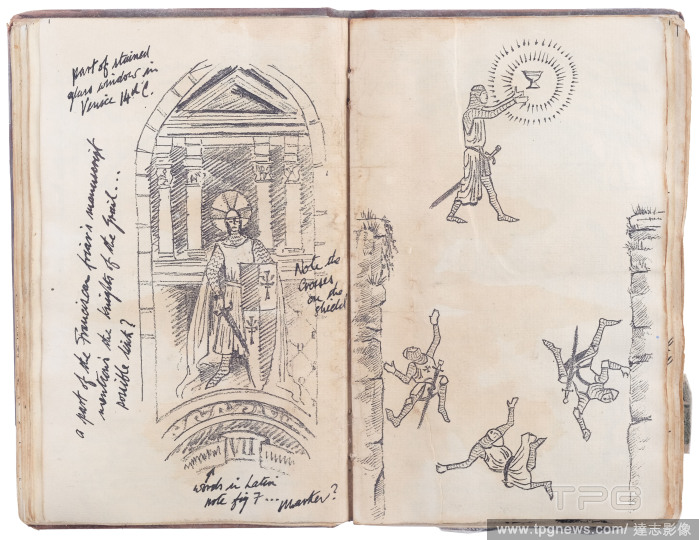 part of stained
glass window in
Venice 14th C.
a part of the Franciscan friar's manuscript
mentions the knights of the grail...
possible link?
Note the
Crosses
on the
shield
VII
words in Latin
note fig 7... marker?
TPG
www.tpgnews.com/ 達志影像